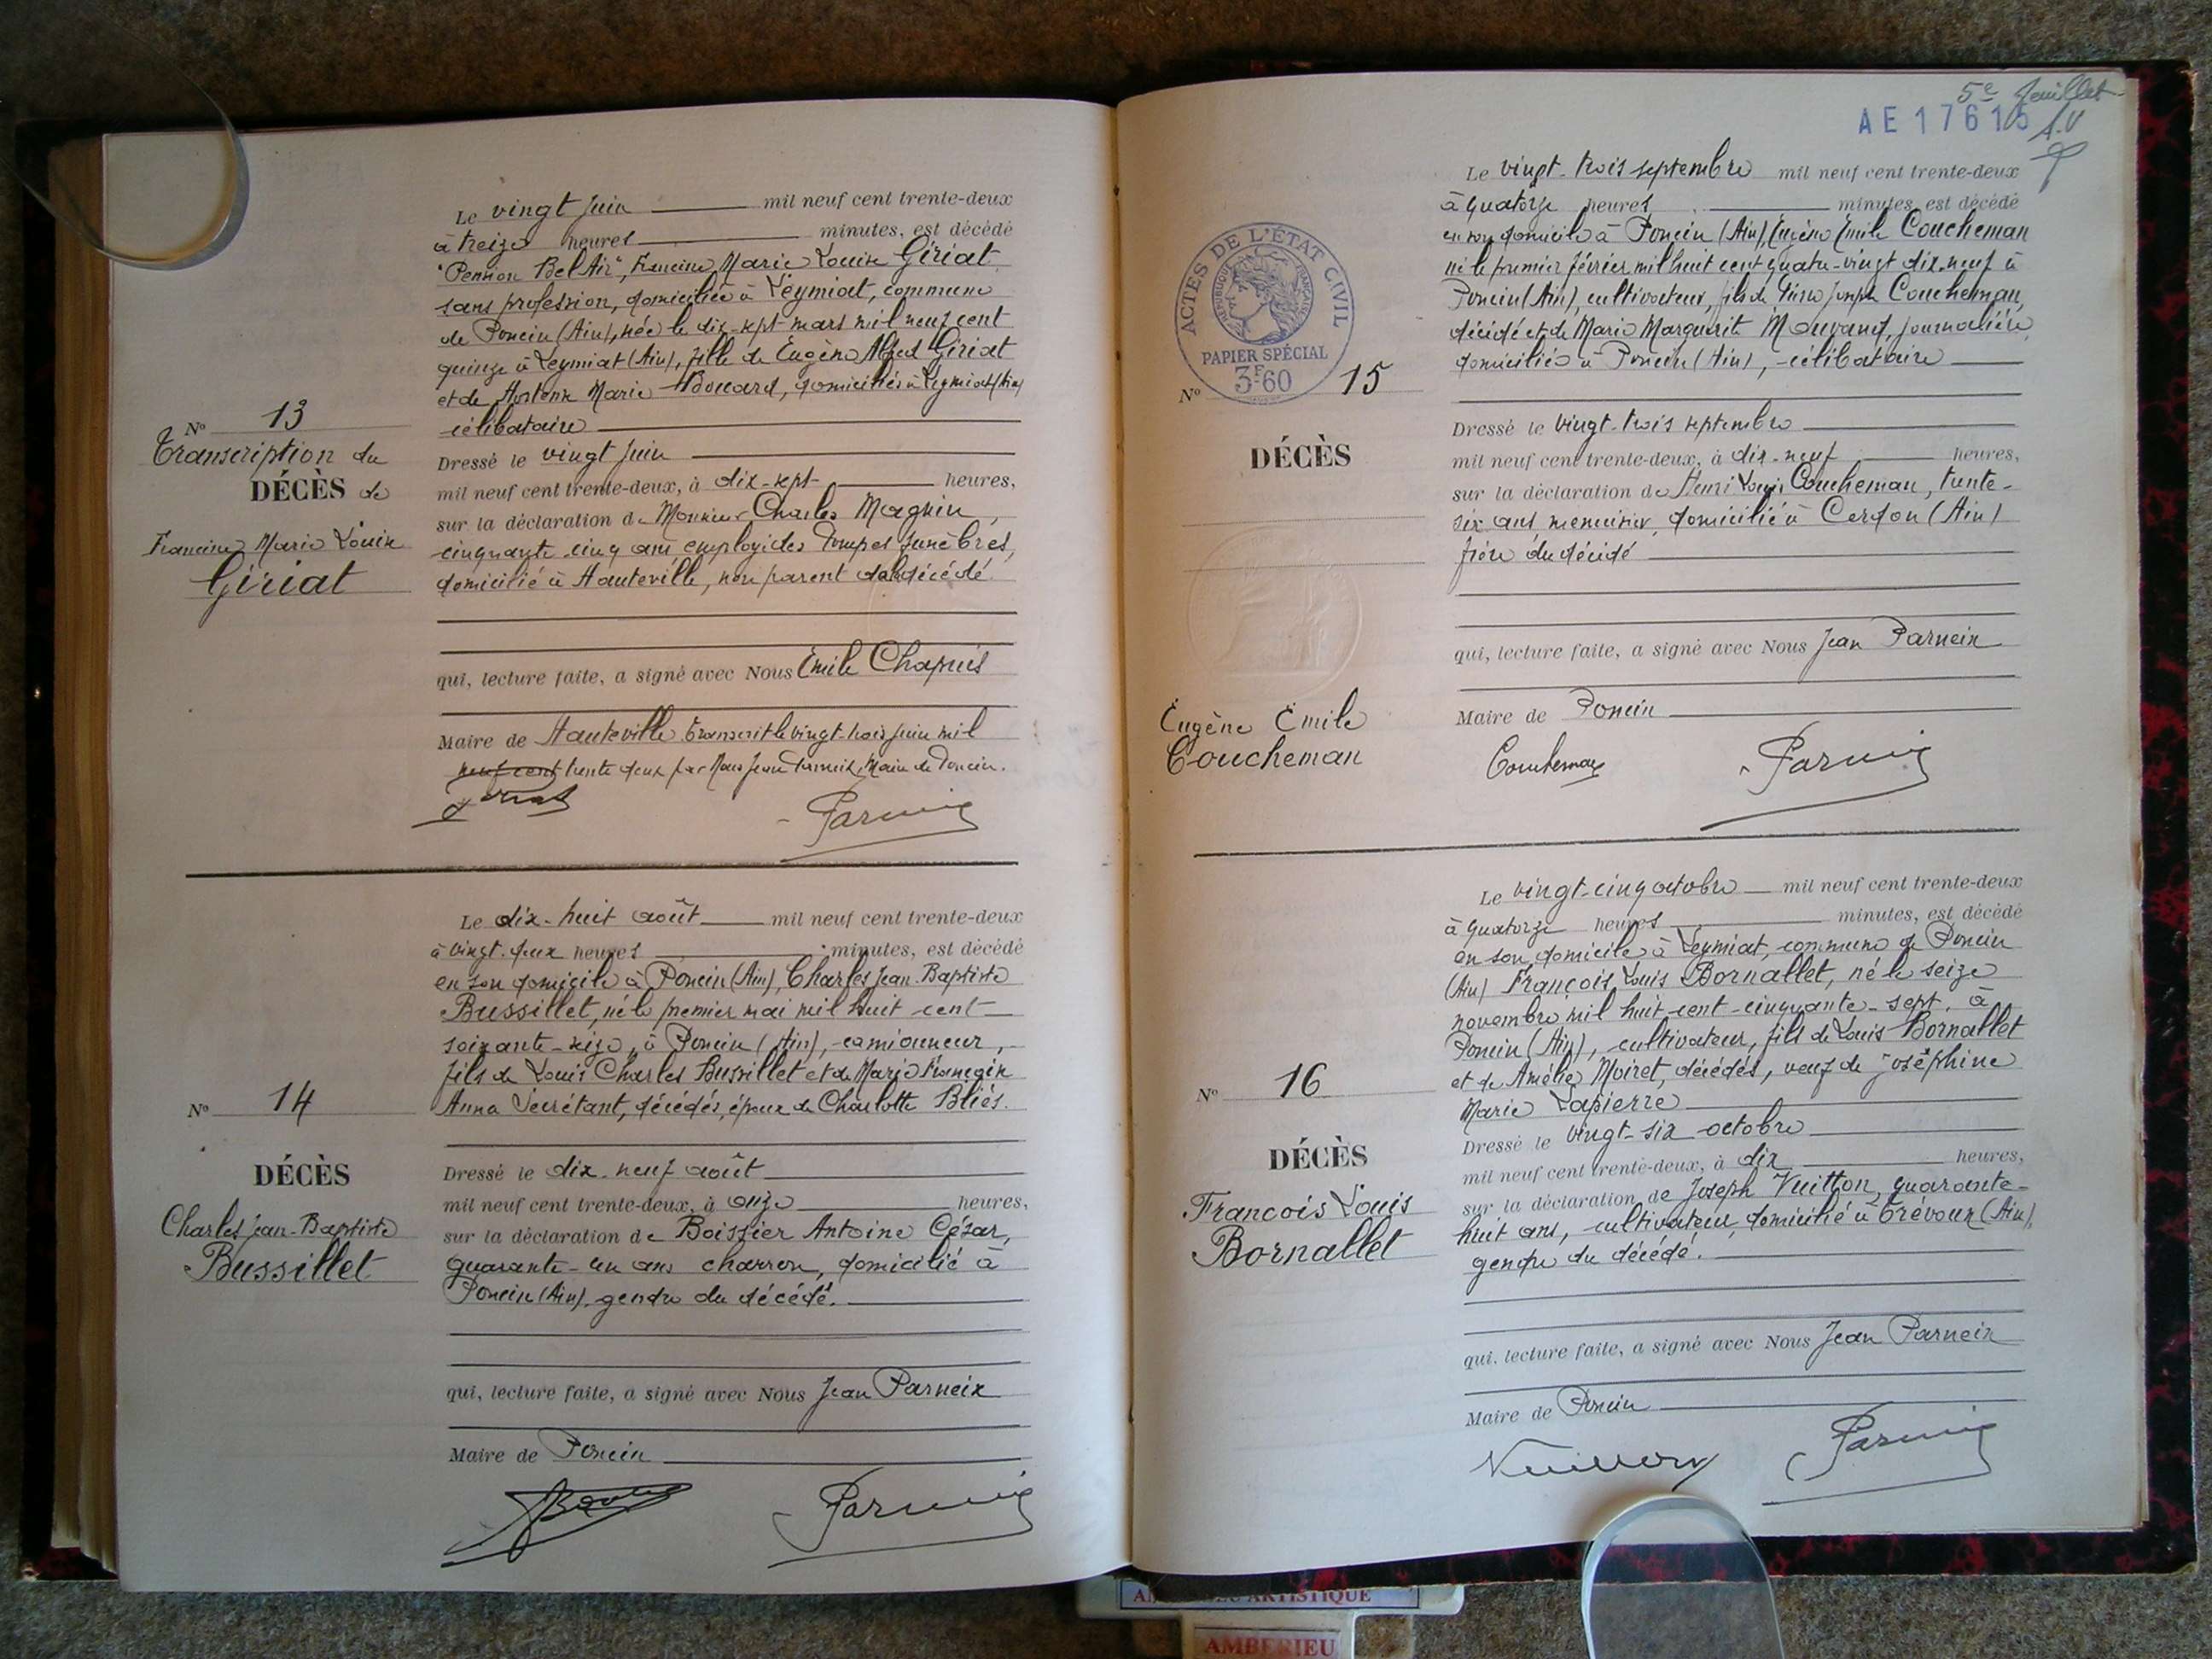 Le vingt juin mil neuf cent trente-deux
à treize heures minutes, est décédé
"Pension Bel Air", Francine Marie Louise Giriat
sans profession, domiciliée à Leymiat, commune
de Poncin (Ain), née le dix-sept mars mil neuf cent
quinze à Leymiat (Ain), fille de Eugène Alfred Giriat
et de Hortense Marie Bouvard, domiciliés à Leymiat (Ain)
célibataire
Nº 13
Transcription du
DÉCÈS de
Francine Marie Louise
Giriat
Dressé le vingt juin
mil neuf cent trente-deux, à dix-sept heures,
sur la déclaration de Monsieur Charles Magnin,
cinquante cinq ans employé des Pompes funèbres,
domicilié à Hauteville, non parent de la décédé
qui, lecture faite, a signé avec Nous Emile Chapuis
Maire de Hauteville. Transcrit le vingt-trois juin mil
neuf cent trente deux par Nous Jean Parneix, Maire de Poncin.
Parneix
Le dix-huit août mil neuf cent trente-deux
à vingt-deux heures minutes, est décédé
en son domicile à Poncin (Ain), Charles Jean-Baptiste
Bussillet, né le premier mai mil huit cent
soixante-seize, à Poncin (Ain), camionneur,
fils de Louis Charles Bussillet et de Marie Françoise
Anna Secrétant, décédés, époux de Charlotte Bliés.
Nº 14
DÉCÈS
Charles Jean-Baptiste
Bussillet
Dressé le dix-neuf août
mil neuf cent trente-deux, à onze heures,
sur la déclaration de Boissier Antoine César,
quarante-un ans charron, domicilié à
Poncin (Ain), gendre du décédé.
qui, lecture faite, a signé avec Nous Jean Parneix
Maire de Poncin
Parneix
5e feuillet
AE17615
A.V
Le vingt-trois septembre mil neuf cent trente-deux
à quatorze heures minutes, est décédé
en son domicile à Poncin (Ain) Eugène Emile Coucheman
né le premier février mil huit cent quatre-vingt dix-neuf à
Poncin (Ain), cultivateur, fils de Joseph Coucheman,
décédé et de Marie Marguerite journalière
domiciliée à Poncin (Ain), célibataire
ACTES DE L'ÉTAT CIVIL
RÉPUBLIQUE FRANÇAISE
PAPIER SPÉCIAL
3F60
Nº 15
DÉCÈS
Eugène Emile
Coucheman
Dressé le vingt-trois septembre
mil neuf cent trente-deux, à dix-neuf heures,
sur la déclaration de Henri Louis Coucheman, trente-
six ans menuisier, domicilié à Cerdon (Ain)
frère du décédé
qui, lecture faite, a signé avec Nous Jean Parneix
Maire de Poncin
Coucheman Parneix
Le vingt-cinq octobre mil neuf cent trente-deux
à quatorze heures minutes, est décédé
en son domicile à Leymiat, commune de Poncin
(Ain) François Louis Bornallet, né le seize
novembre mil huit cent cinquante-sept, à
Poncin (Ain), cultivateur, fils de Louis Bornallet
et de Amélie Moiret, décédés, veuf de Joséphine
Marie Lapierre
Nº 16
DÉCÈS
François Louis
Bornallet
Dressé le vingt-six octobre
mil neuf cent trente-deux, à dix heures,
sur la déclaration de Joseph Vuitton, quarante-
huit ans, cultivateur, domicilié à Trévoux (Ain),
gendre du décédé.
qui, lecture faite, a signé avec Nous Jean Parneix
Maire de Poncin
Parneix
AMBERIEU ARTISTIQUE
AMBERIEU